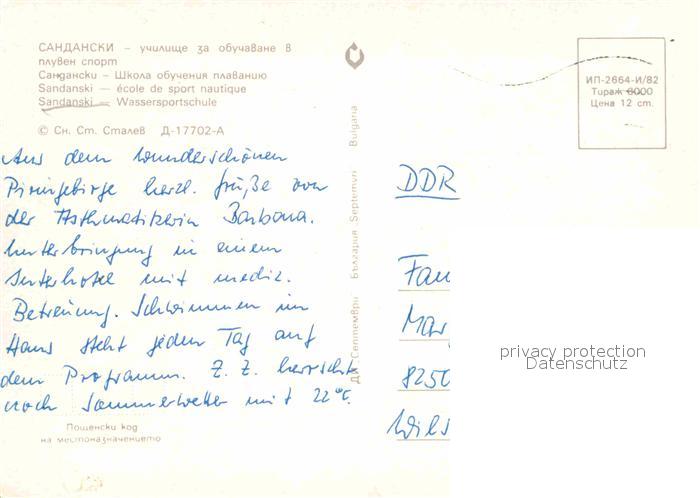 САНДАНСКИ – училище за обучаване в
плувен спорт
Сандански – Школа обучения плаванию
Sandanski — école de sport nautique
Sandanski — Wassersportschule
© Сн. Ст. Сталев Д-17702-А
Aus dem wunderschönen
Piringebirge herzl. Grüße von
der Asthmatikerin Barbara.
Unterbringung in einem
Interhotel mit mediz.
Betreuung. Schwimmen im
Haus steht jeden Tag auf
dem Programm. Z. Z. herrscht
noch Sommerwetter mit 22°C.
Пощенски код
на местоназначението
ДП „Септември" България Septemvri Bulgaria
ИП-2664-И/82
Тираж 6000
Цена 12 ст.
DDR
Fam
Mar
8250
Wils
privacy protection
Datenschutz